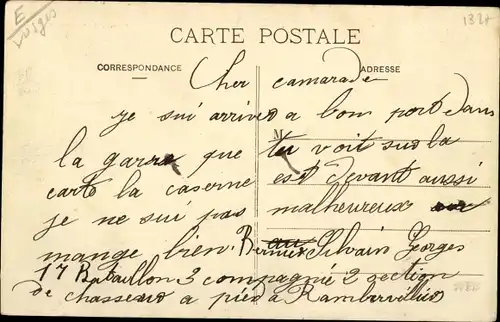 E
Vosges
1324
CARTE POSTALE
CORRESPONDANCE
ADRESSE
Cher camarade
je sui arriver a bon port dans
M
la garre que tu voit sur la
carto la caserne est devant aussi
je ne sui pas malheureux on
mange bien. Bernier Silvain Georges
17 Bataillon 3 compagnie 2 section
de chasseurs a pied a Rambervillers